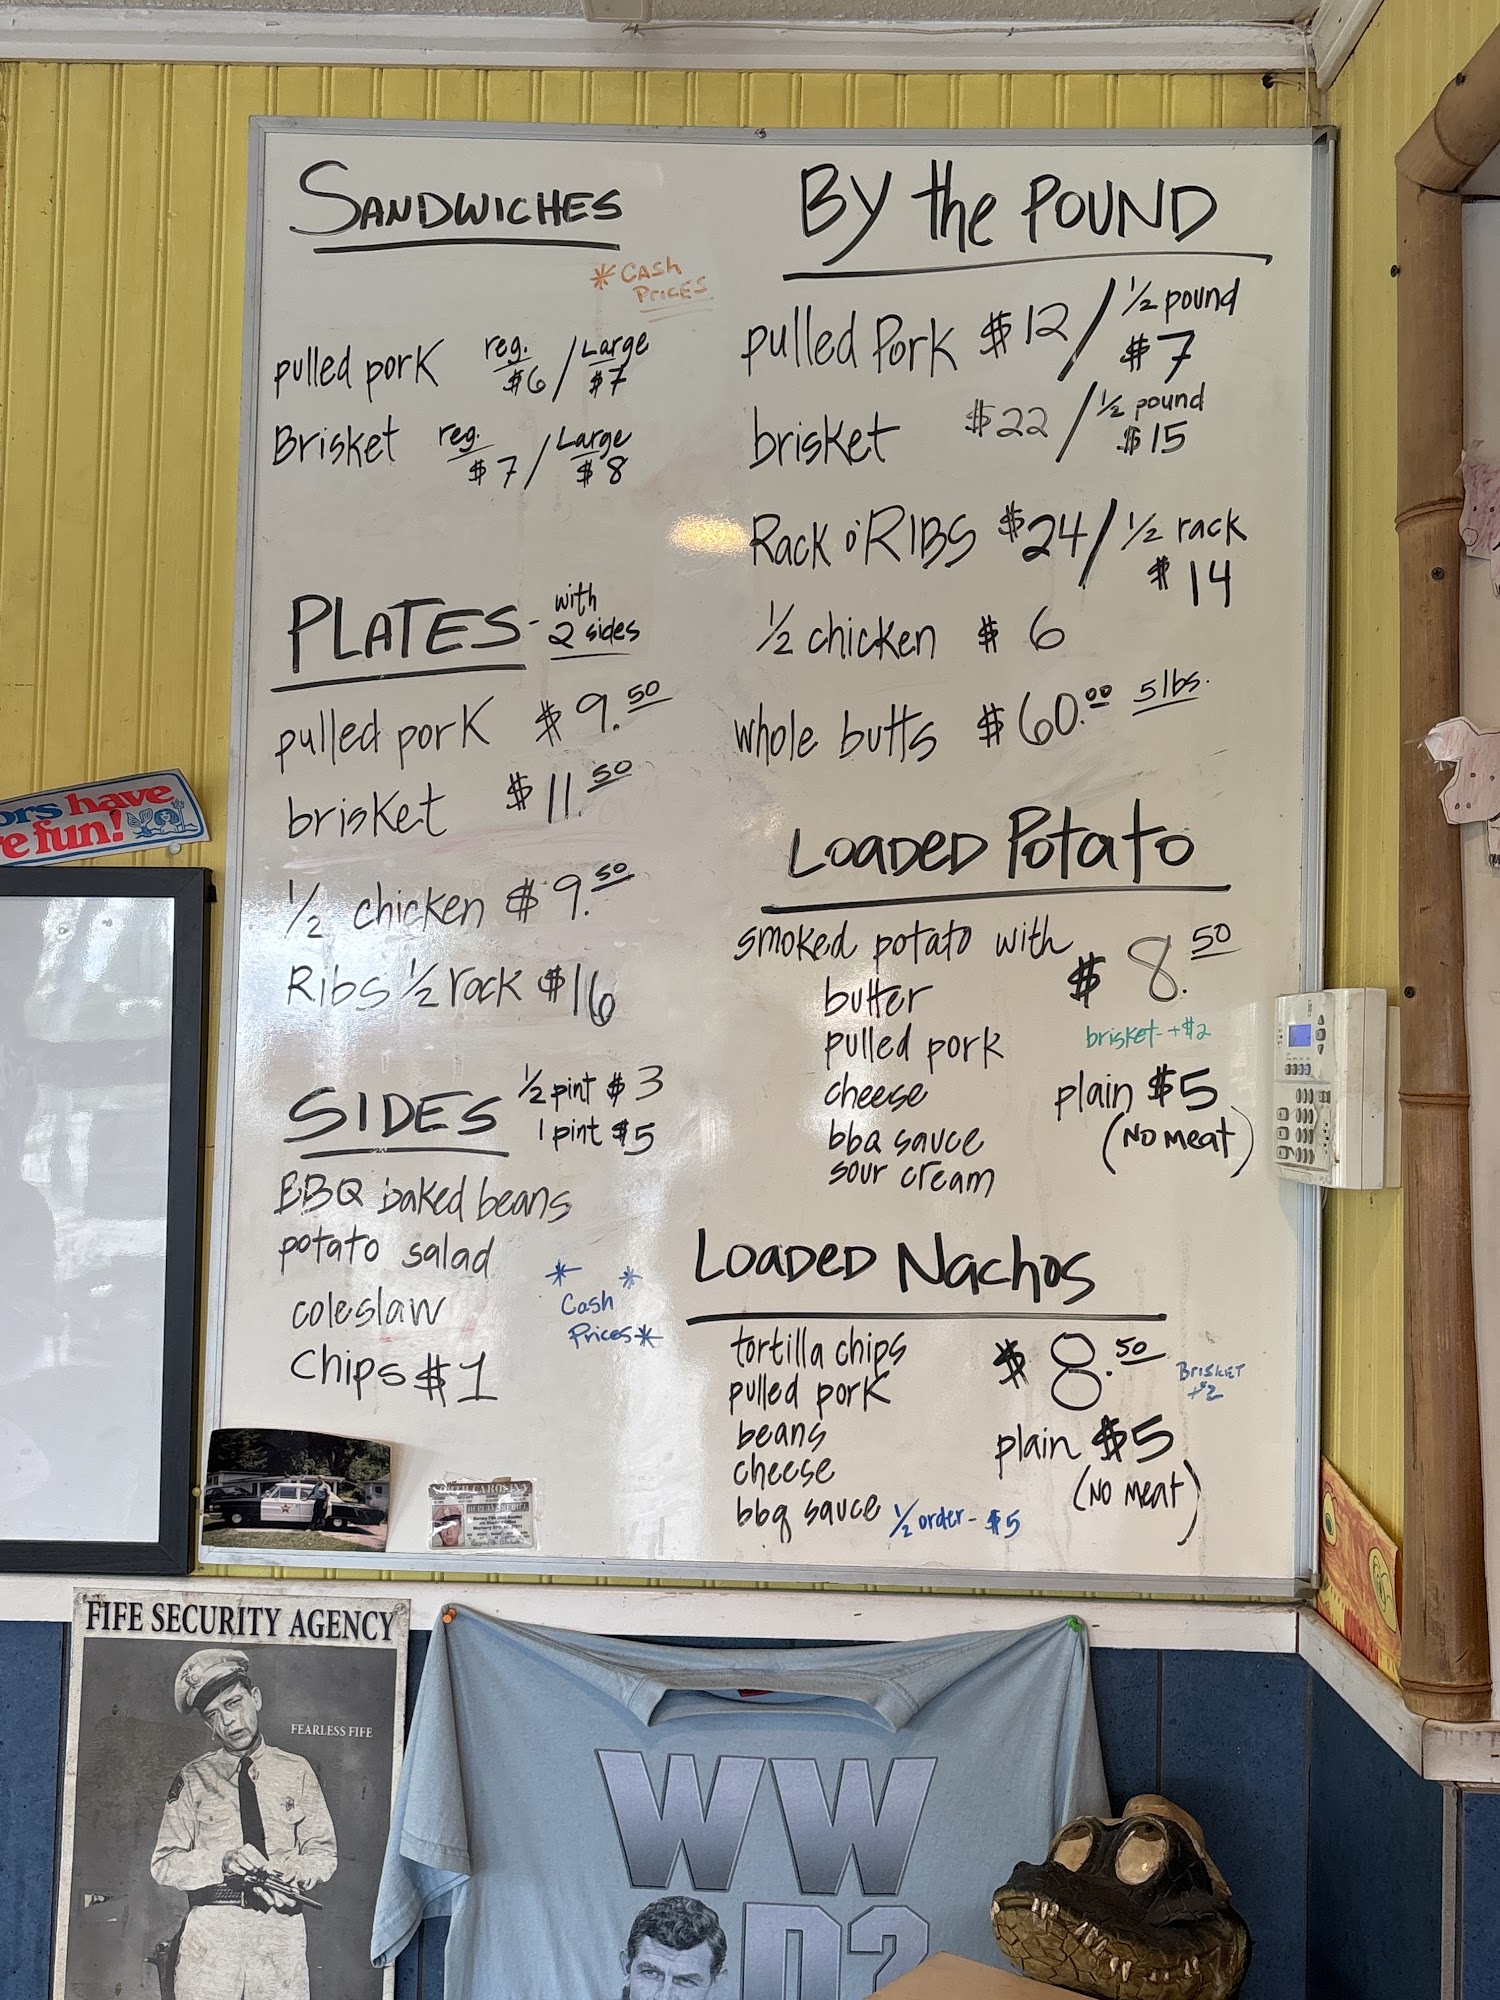 SANDWICHES
* CASH
PRICES
pulled pork reg. $6 / Large $7
Brisket reg. $7 / Large $8
PLATES - with 2 sides
pulled pork $9.50
brisket $11.50
1/2 chicken $9.50
Ribs 1/2 rack $16
SIDES 1/2 pint $3
1 pint $5
BBQ baked beans
potato salad
coleslaw
Chips $1
* *
Cash
Prices *
By the POUND
pulled Pork $12 / 1/2 pound $7
brisket $22 / 1/2 pound $15
Rack o' RIBS $24 / 1/2 rack $14
1/2 chicken $6
whole butts $60.00 5 lbs.
LOADED Potato
smoked potato with $8.50
butter
pulled pork brisket +$2
cheese plain $5
bbq sauce (NO meat)
sour cream
LOADED Nachos
tortilla chips $8.50
pulled pork BRISKET +$2
beans plain $5
cheese (NO meat)
bbq sauce 1/2 order - $5
ors have
e fun!
NORTH CAROLINA
FIFE SECURITY AGENCY
FEARLESS FIFE
WW
D?